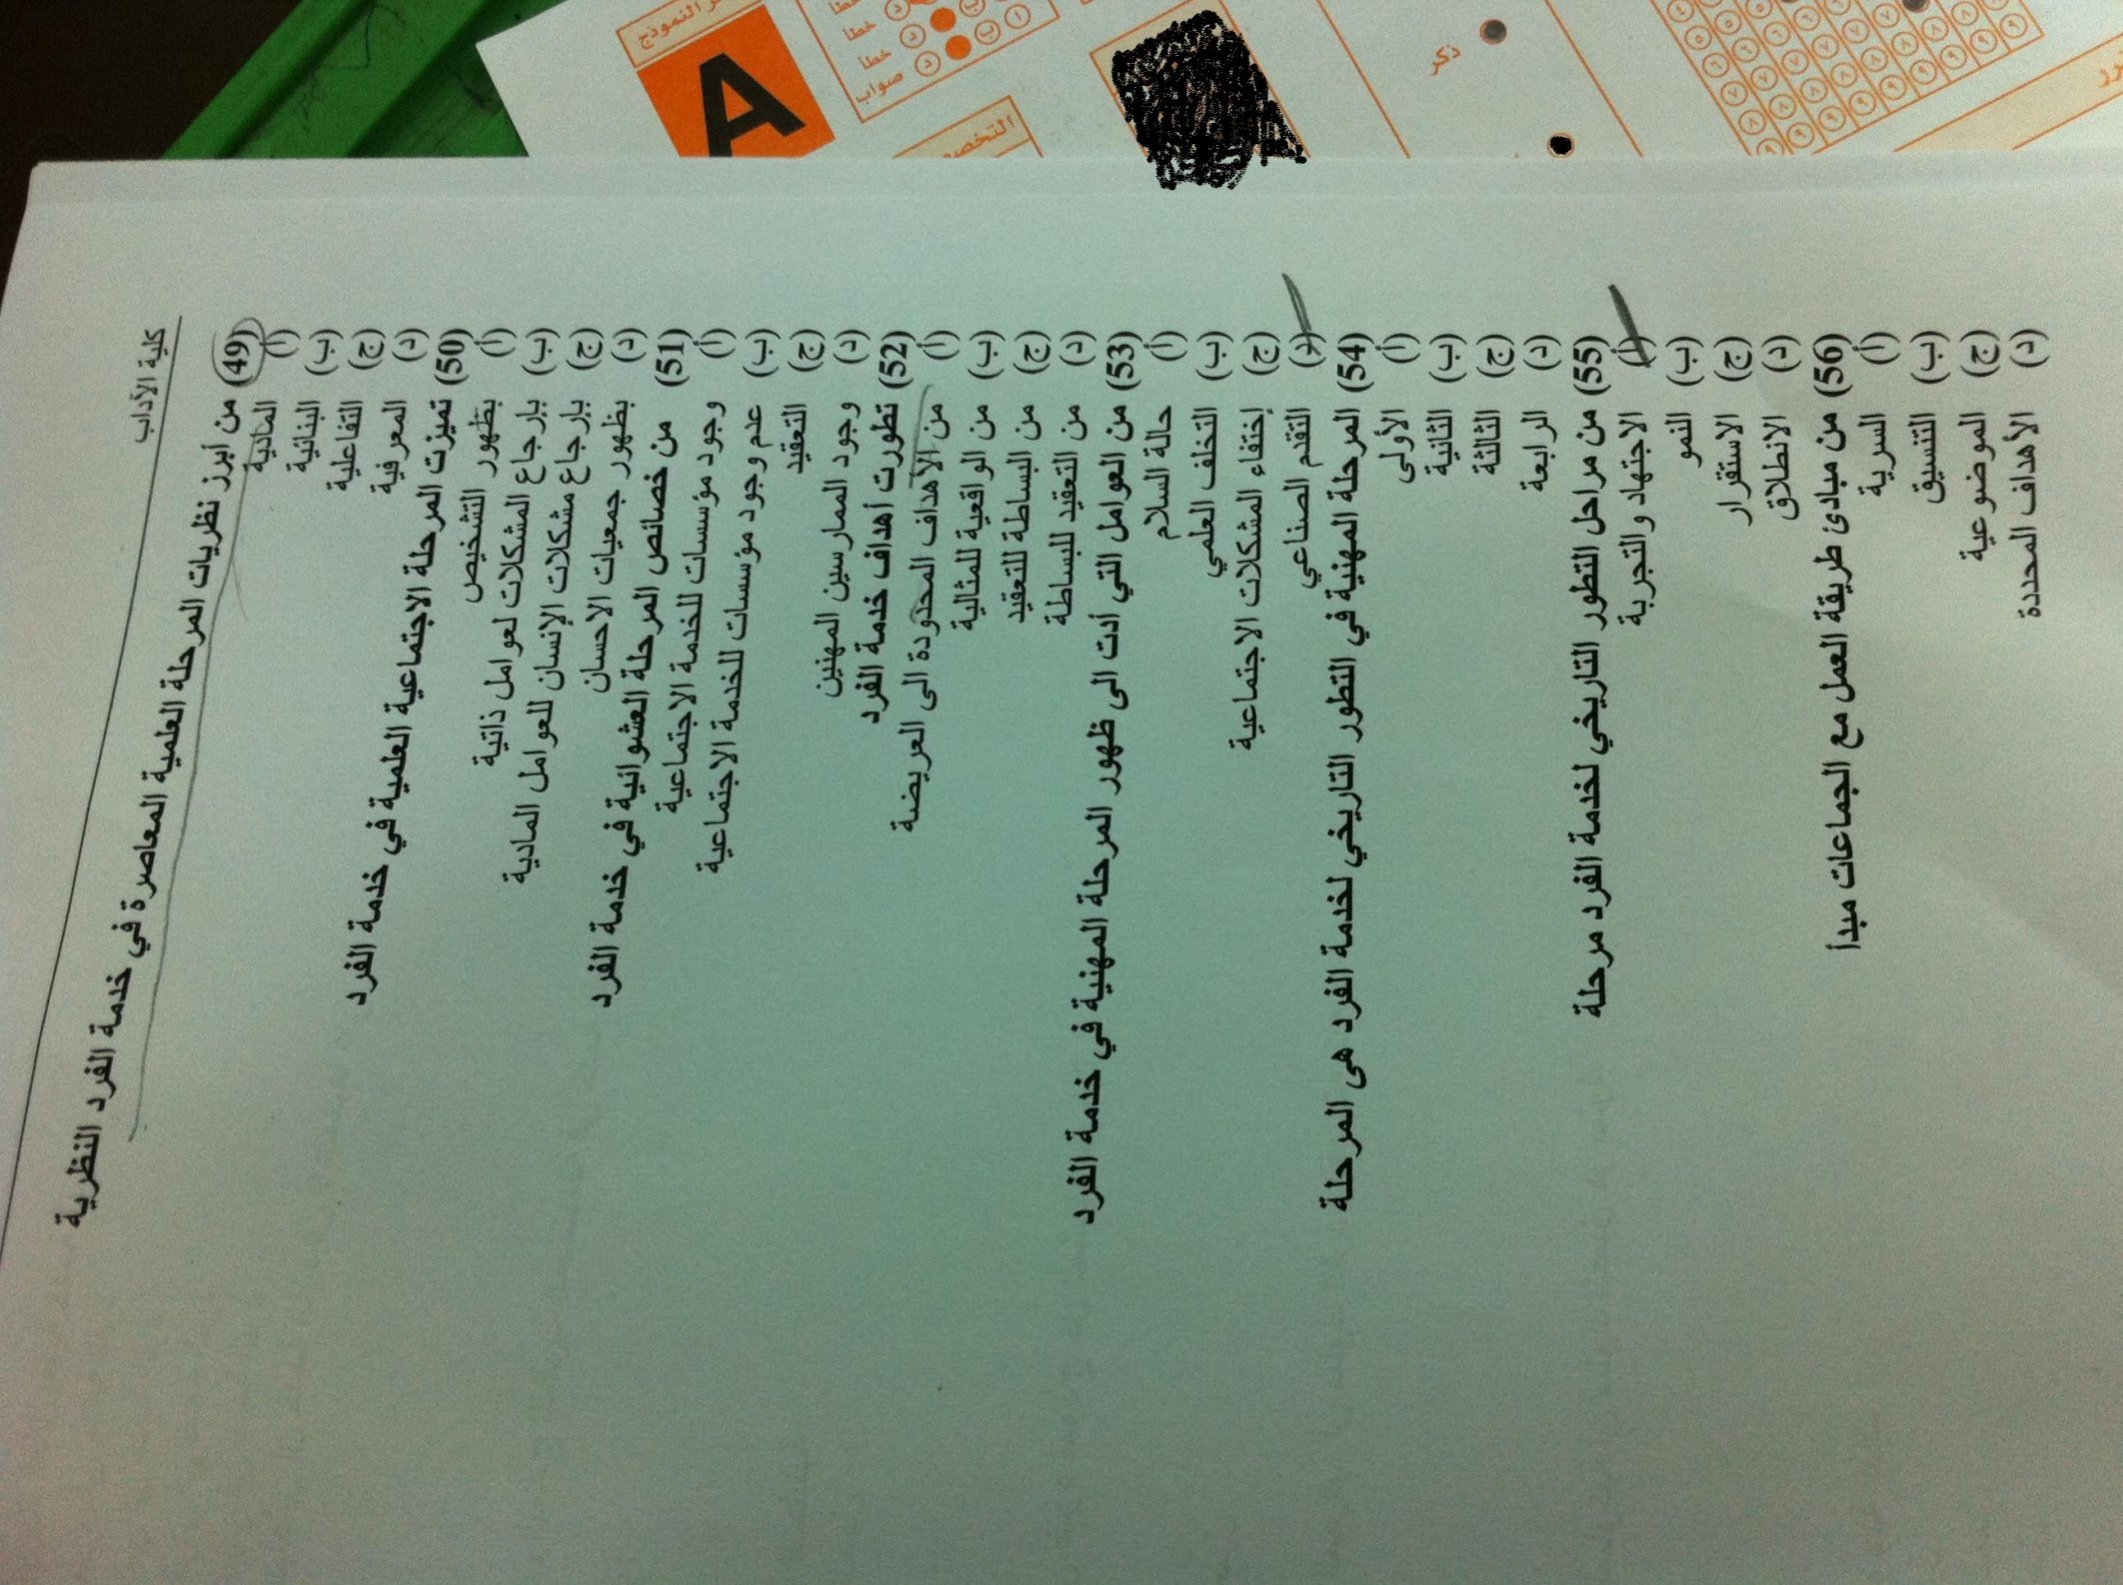 النموذج
A
خطأ
خطأ
خطأ
صواب
ذكر
كلية الآداب
(49) من أبرز نظريات المرحلة العلمية المعاصرة في خدمة الفرد النظرية
(أ) المادية
(ب) البنائية
(ج) التفاعلية
(د) المعرفية
(50) تميزت المرحلة الاجتماعية العلمية في خدمة الفرد
(أ) بظهور التشخيص
(ب) بإرجاع المشكلات لعوامل ذاتية
(ج) بإرجاع مشكلات الإنسان للعوامل المادية
(د) بظهور جمعيات الاحسان
(51) من خصائص المرحلة العشوائية في خدمة الفرد
(أ) وجود مؤسسات للخدمة الاجتماعية
(ب) عدم وجود مؤسسات للخدمة الاجتماعية
(ج) التعقيد
(د) وجود الممارسين المهنين
(52) تطورت أهداف خدمة الفرد
(أ) من الأهداف المحدودة الى العريضة
(ب) من الواقعية للمثالية
(ج) من البساطة للتعقيد
(د) من التعقيد للبساطة
(53) من العوامل التي أدت الى ظهور المرحلة المهنية في خدمة الفرد
(أ) حالة السلام
(ب) التخلف العلمي
(ج) إختفاء المشكلات الاجتماعية
(د) التقدم الصناعي
(54) المرحلة المهنية في التطور التاريخي لخدمة الفرد هى المرحلة
(أ) الأولى
(ب) الثانية
(ج) الثالثة
(د) الرابعة
(55) من مراحل التطور التاريخي لخدمة الفرد مرحلة
(أ) الاجتهاد والتجربة
(ب) النمو
(ج) الاستقرار
(د) الانطلاق
(56) من مبادئ طريقة العمل مع الجماعات مبدأ
(أ) السرية
(ب) التنسيق
(ج) الموضوعية
(د) الأهداف المحددة